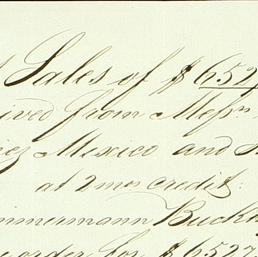 Sales of $ 652
ived from Messrs
iez Mexico and
at 2 mos credit:
mmermann Buckh
order for $ 6527